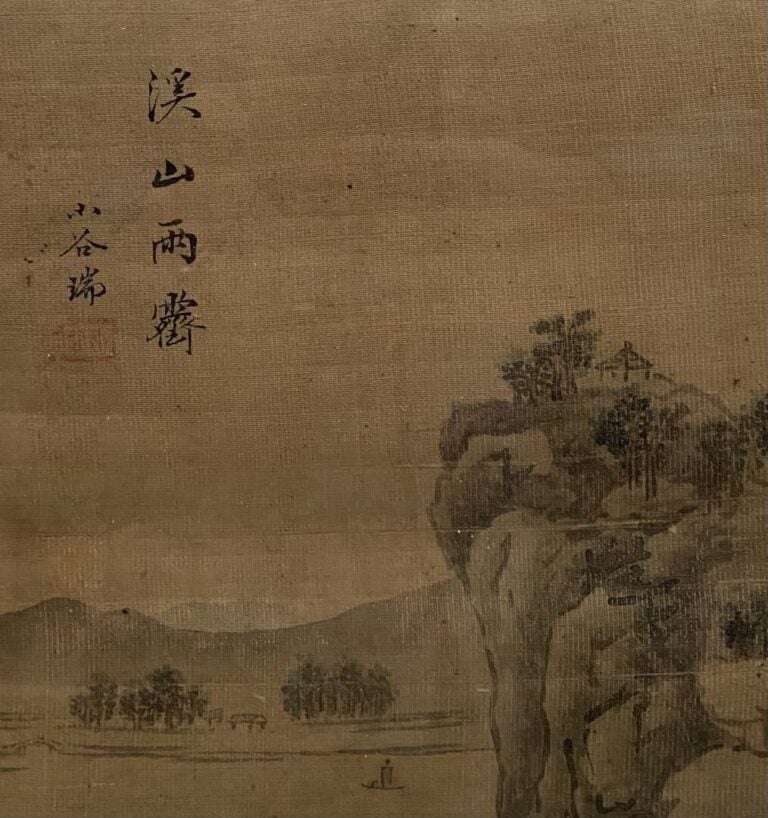 溪山雨霽
小谷瑞